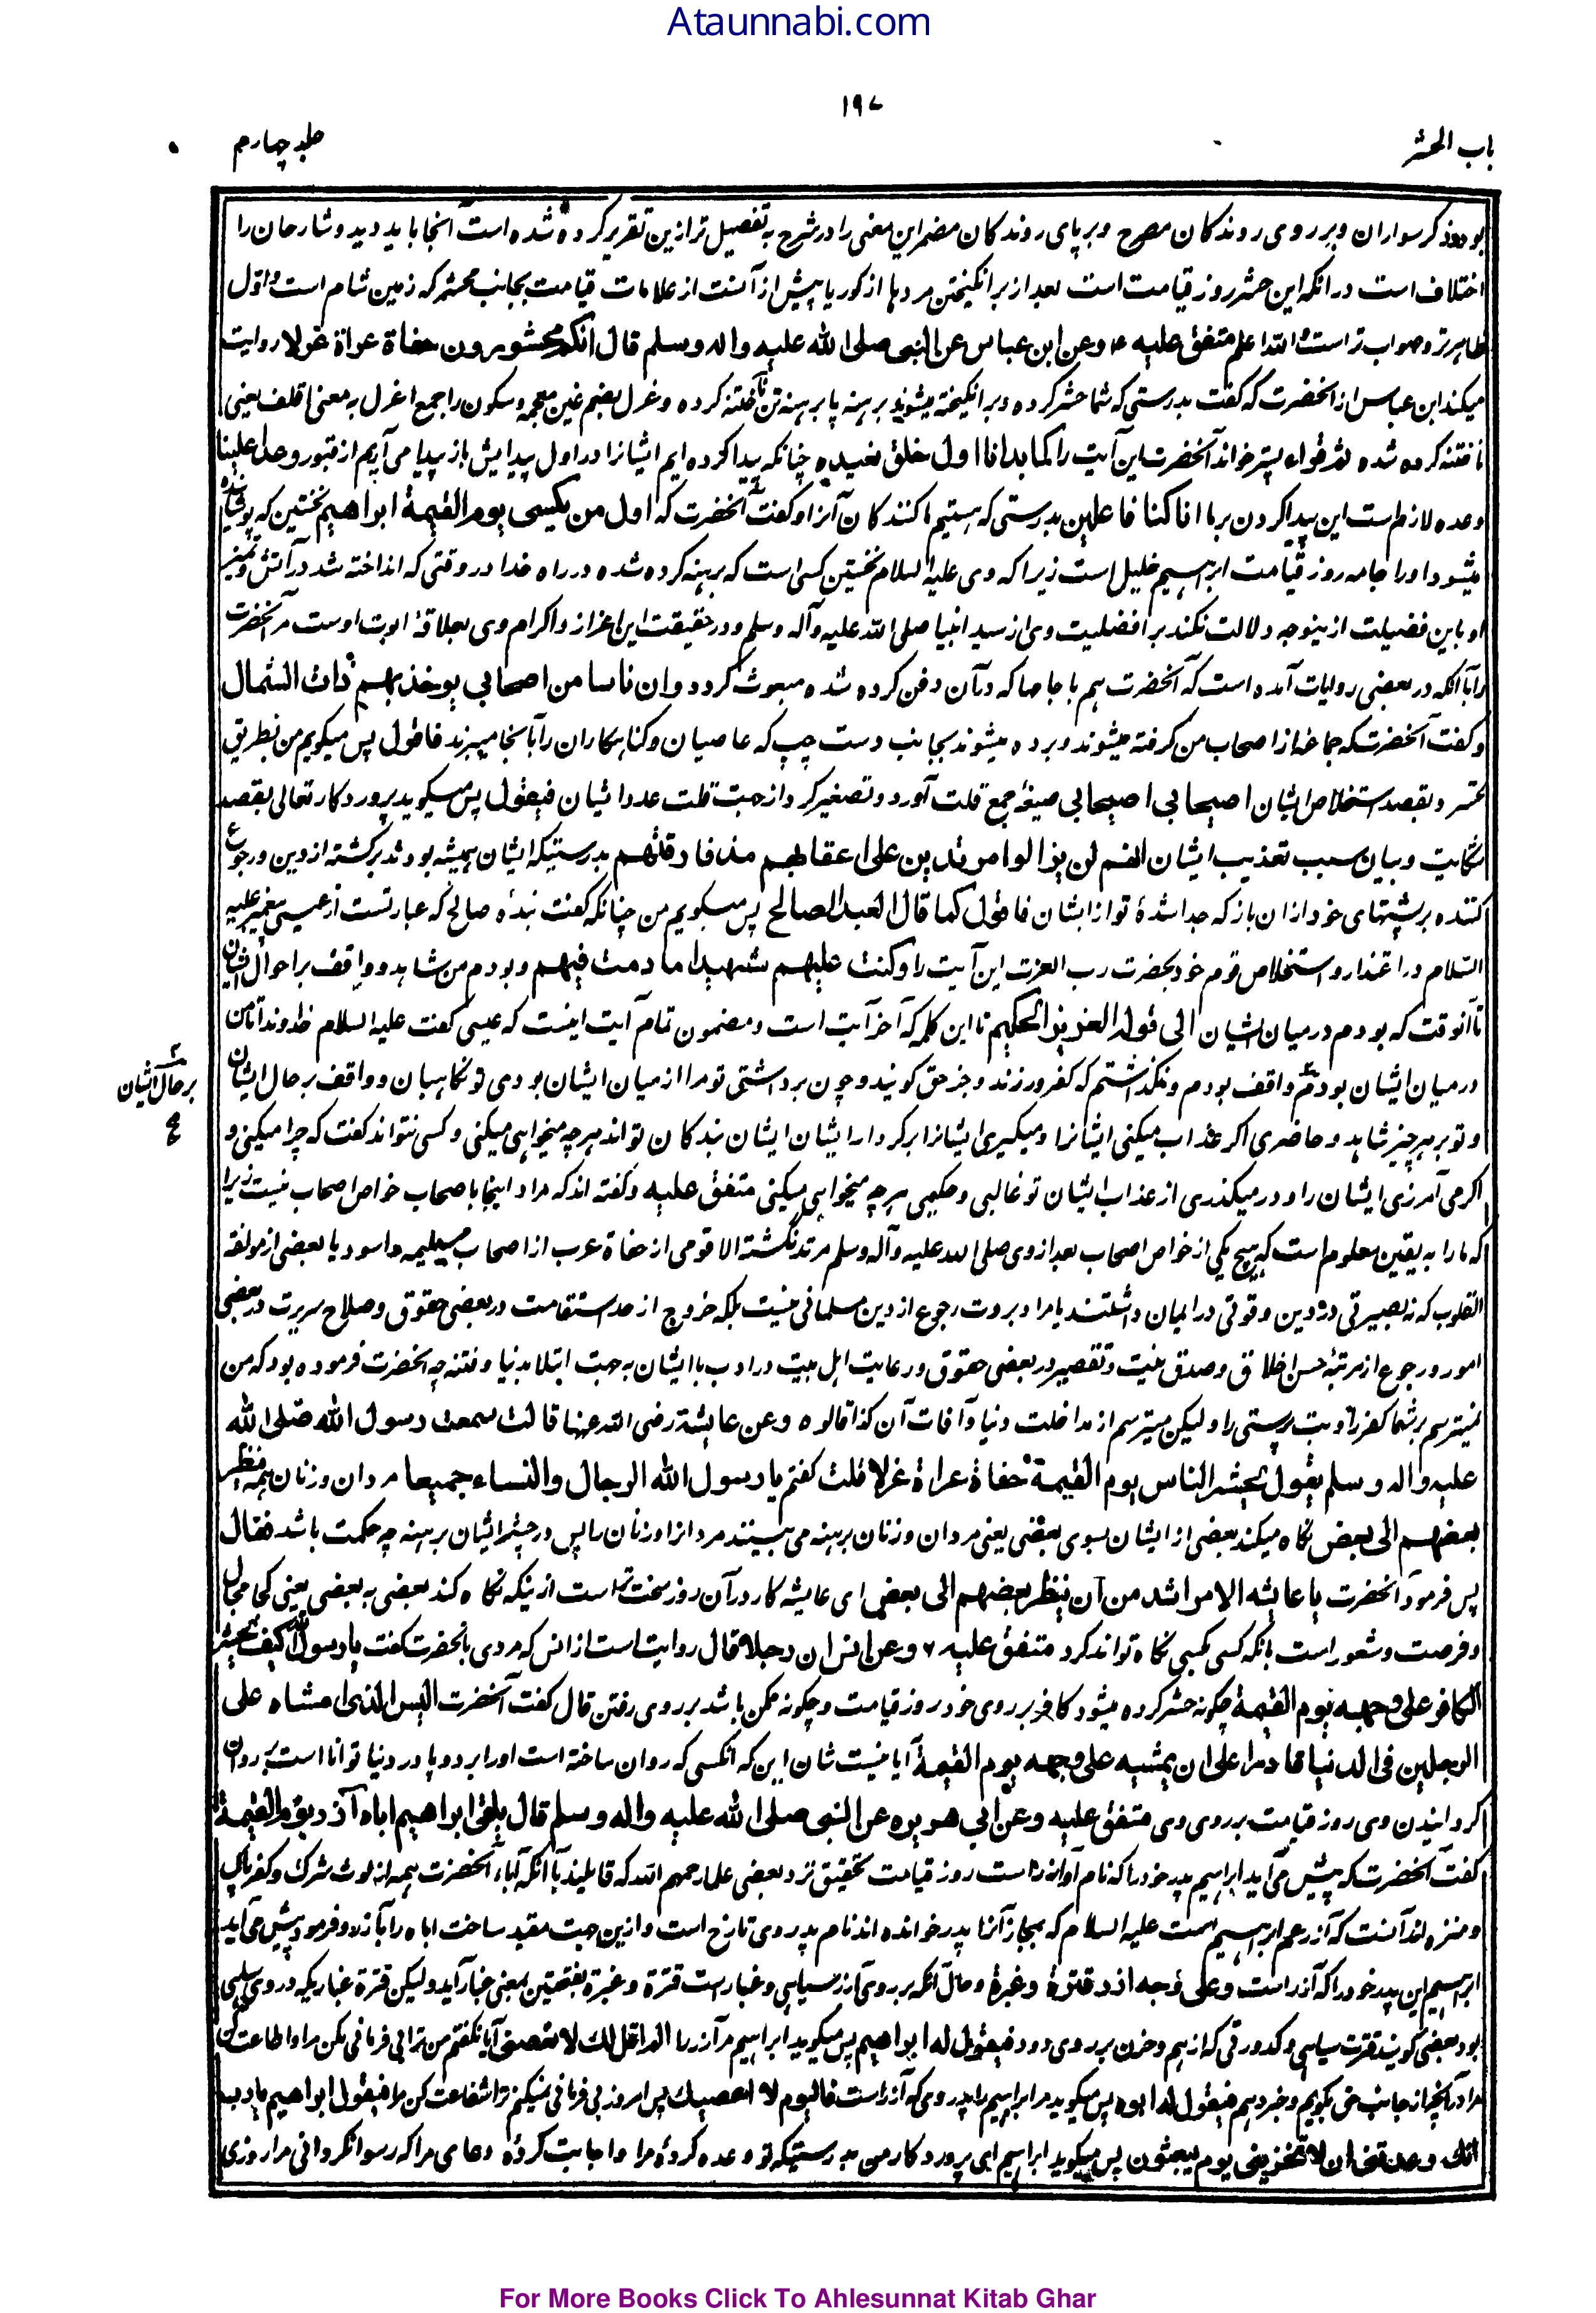 Ataunnabi.com
۱۹۷
باب الحشر
جلد چهارم
بود و ذکر سواران و بر روی روندکان مصرح و بر پای روندکان مضمر این معنی را در شرح به تفصیل تر ازین تقریر کرده شده است آنجا باید دید و شارحان را
اختلاف است در آنکه این حشر روز قیامت است بعد از برانکیختن مردها از کور یا پیش از آنست از علامات قیامت بجانب محشر که زمین شام است و اول
ظاهرتر و صواب تر است و الله اعلم متفق علیه وعن ابن عباس عن النبی صلی الله علیه واله وسلم قال انکم محشورون حفاة عراة غرلا روایت
میکند ابن عباس از آنحضرت که کفت بدرستی که شما حشر کرده و برانکیخته میشوید برهنه پا برهنه تن ناختنه کرده و غرل بضم غین معجمه و سکون را جمع اغرل به معنی اقلف یعنی
ناختنه کرده شده ثم قراء پستر خواند آنحضرت این آیت را کما بدانا اول خلق نعیده چنانکه پیدا کرده ایم ایشانرا در اول پیدایش باز پیدا می آریم از قبور وعدا علینا
وعده لازم است این پیدا کردن بر ما انا کنا فاعلین بدرستی که هستیم ما کنندکان آنرا و کفت آنحضرت که اول من یکسی یوم القیمة ابراهیم نخستین که پوشانیده
میشود او را جامه روز قیامت ابراهیم خلیل است زیرا که وی علیه السلام نخستین کسی است که برهنه کرده شده در راه خدا در وقتی که انداخته شد در آتش و تمیز
او باین فضیلت ازینوجه دلالت نکند بر افضلیت وی از سید انبیا صلی الله علیه وآله وسلم و در حقیقت این اعزاز و اکرام وی بعلاقهٔ ابوت اوست مر آنحضرت
را با آنکه در بعضی روایات آمده است که آنحضرت هم با جامها که در آن دفن کرده شده مبعوث کردد وان ناسا من اصحابی یوخذ بهم ذات الشمال
و کفت آنحضرت که جماعه از اصحاب من کرفته میشوند و برده میشوند بجانب دست چپ که عاصیان و کناهکاران را بآنجا میبرند فاقول پس میکویم من بطریق
تحسر و بقصد استخلاص ایشان اصیحابی اصیحابی صیغهٔ جمع قلت آورد و تصغیر کرد از جهت قلت عدد ایشان فیقول پس میکوید پروردکار تعالی بقصد
شکایت و بیان سبب تعذیب ایشان انهم لن یزالوا مرتدین علی اعقابهم مذ فارقتهم بدرستیکه ایشان همیشه بودند برکشته از دین و رجوع
کننده بر پشتهای خود از ان باز که جدا شدهٔ تو از ایشان فاقول کما قال العبد الصالح پس میکویم من چنانکه کفت بندهٔ صالح که عبارتست از عیسی پیغمبر علیه
السلام در اعتذار و استخلاص قوم خود بحضرت رب العزت این آیت را وکنت علیهم شهیدا ما دمت فیهم و بودم من شاهد و واقف بر احوال ایشان
تا آنوقت که بودم در میان ایشان الی قوله العزیز الحکیم تا این کلمه که آخر آیت است و مضمون تمام آیت اینست که عیسی کفت علیه السلام خداوندا تا من
در میان ایشان بودم واقف بودم و نکذاشتم که کفر ورزند و جز حق کویند و چون برداشتی تو مرا از میان ایشان بودی تو نکاهبان و واقف بر حال ایشان
بر حال ایشان
و تو بر هر چیز شاهد و حاضری اکر عذاب میکنی ایشانرا و میکیری ایشانرا بر کردار ایشان ایشان بندکان تواند هر چه میخواهی میکنی و کسی نتواند کفت که چرا میکنی و
اکر می آمرزی ایشان را و در میکذری از عذاب ایشان تو غالبی و حکیمی هر چه میخواهی میکنی متفق علیه و کفته اند که مراد اینجا باصحاب خواص اصحاب نیست زیرا
که ما را به یقین معلوم است که هیچ یکی از خواص اصحاب بعد از وی صلی الله علیه وآله وسلم مرتد نکشته الا قومی از جفاة عرب از اصحاب مسیلمه و اسود یا بعضی از مولفة
القلوب که نه بصیرتی در دین و قوتی در ایمان داشتند یا مراد بردت رجوع از دین مسلمانی نیست بلکه خروج از حد استقامت در بعضی حقوق و صلاح سریرت در بعضی
امور و رجوع از مرتبهٔ حسن اخلاق و صدق نیت و تقصیر در بعضی حقوق و رعایت اهل بیت در ادب با ایشان به جهت ابتلا بدنیا و فتنه چه آنحضرت فرموده بود که من
نمیترسم بر شما کفر را و بت پرستی را و لیکن میترسم از مداخلت دنیا و آفات آن کذا قالوه وعن عایشة رضی الله عنها قالت سمعت رسول الله صلی الله
علیه واله وسلم یقول یحشر الناس یوم القیمة حفاة عراة غرلا قلت کفتم یا رسول الله الرجال والنساء جمیعا مردان و زنان همه ینظر
بعضهم الی بعض نکاه میکند بعضی از ایشان بسوی بعضی یعنی مردان و زنان برهنه می بینند مردان را و زنان را پس در حشر ایشان برهنه چه حکمت باشد فقال
پس فرمود آنحضرت یا عایشه الامر اشد من ان ینظر بعضهم الی بعض ای عایشه کار در آن روز سخت تر است از نیکه نکاه کند بعضی به بعضی یعنی کجا مجال
و فرصت و شعور است بآنکه کسی بکسی نکاه تواند کرد متفق علیه وعن انس ان رجلا قال روایت است از انس که مردی بآنحضرت کفت یا رسول الله کیف یحشر
الکافر علی وجهه یوم القیمة چکونه حشر کرده میشود کافر بر روی خود روز قیامت و چکونه ممکن باشد بر روی رفتن قال کفت آنحضرت الیس الذی امشاه علی
الرجلین فی الدنیا قادرا علی ان یمشیه علی وجهه یوم القیمة آیا نیست شان این که آنکسی که روان ساخته است او را بر دو پا در دنیا توانا است بر روان
کردانیدن وی روز قیامت بر روی وی متفق علیه وعن ابی هریره عن النبی صلی الله علیه واله وسلم قال یلقی ابراهیم اباه آذر یوم القیمة
کفت آنحضرت که پیش می آید ابراهیم پدر خود را که نام او آزر است روز قیامت تحقیق نزد بعضی علما رحمهم الله که قایلند بآنکه آباء آنحضرت همه از لوث شرک و کفر پاک
و منزه اند آنست که آزر عم ابراهیم است علیه السلام که بمجاز آنرا پدر خوانده اند نام پدر وی تارخ است و ازین جهت مقید ساخت اباه را بآزر و فرمود پیش می آید
ابراهیم این پدر خود را که آزر است وعلی وجه ازر قترة وغبرة و حال آنکه بر روی آزر سیاهی و غبار است قترة و غبرة بفتحتین بمعنی غبار آید ولیکن قترة غباریکه در وی سیاهی
بود بعضی کویند قترت سیاهی و کدورتی که از هم و حزن بر روی دود فیقول له ابراهیم پس میکوید ابراهیم مر آزر را الم اقل لک لا تعصنی آیا نکفتم من ترا بی فرمانی مکن مرا و اطاعت کن
مرا در آنچه از جانب حق بکویم و خبر دهم فیقول له ابوه پس میکوید مر ابراهیم را پدر وی که آزر است فالیوم لا اعصیک پس امروز بی فرمانی نمیکنم ترا شفاعت کن مرا فیقول ابراهیم یا رب
انک وعدتنی ان لا تخزینی یوم یبعثون پس میکوید ابراهیم ای پروردکار من بدرستیکه تو وعده کردهٔ مرا و اجابت کردهٔ دعای مرا که رسوا نکردانی مرا روزی
For More Books Click To Ahlesunnat Kitab Ghar